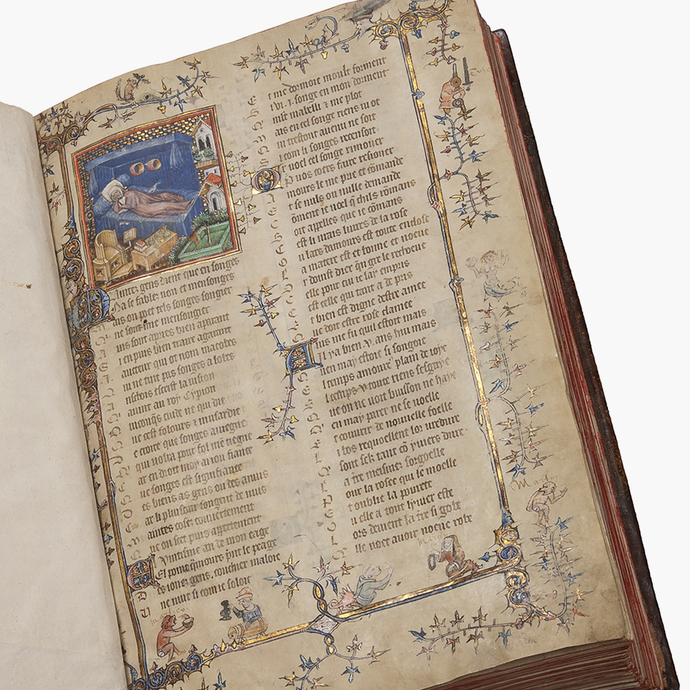 Maintes gens dient que en songes
Na se fable non et mensonges
Mais on puet tels songes songier
Qui ne sont mie mensongier
Ains sont apres bien apparant
Si en puis bien traire agarant
Un aucteur qui ot nom macrobes
Qui ne tint pas songes a lobes
Ancois escrist la vision
Qui auint au roy cypion
Quiconqs cuide ne qui die
Que ce est folours et musardie
De croire que songes auiegne
Qui volra pour fol me tiegne
Car en droit moy ai ion fiance
Que songes est signifiance
Des biens as gens ou des anuis
Car li pluisour songent de nuis
Maintes coses couuertement
Que on set puis appertement
Ou vintisme an de mon eage
El point quamours prist le peage
Des iones gens, couchier maloie
Une nuit si com ie soloie
Et me dormoie moult forment
Si vi .i. songe en mon dorment
Qui moult fu biaus et me plot
Mais en cel songe riens ni ot
Qui trestout auenu ne soit
Si com li songes recensoit
Or voel cel songe rimoier
Pour vos cuers faire resioier
Quamours le me prie et comande
Et se nuls ou nulle demande
Coment ie voel que chils romans
Soit appelles que ie comans
Cest li romans de la rose
Ou lars damours est toute enclose
La matere est et bonne et noeue
Or doinst dieu qui gre le recheue
Celle pour cui ie lay empris
Cest celle qui tant a de pris
Et bien est digne destre amee
Que doit estre rose clamee
Auis me fu quil estoit mais
Il i a bien .v. ans ou mais
En may estoie si songoie
El temps amoureus plain de ioye
El temps v toute riens sesgaye
Que on ne voit buisson ne haye
Qui en may parer ne se voelle
Et couurir de nouuelle foelle
Li bos requoellent lor verdure
Qui sont sech tant com yuers dure
La terre meismes sorguelle
Pour la rose qui le moelle
Et oublie la pourete
V elle a tout lyuer este
Lors deuient la tre si gobe
Quelle voet auoir noeue robe